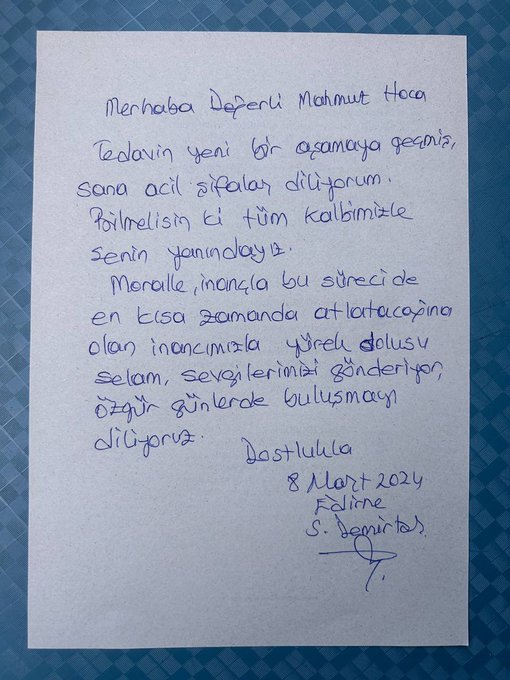 Merhaba Değerli Mahmut Hoca
Tedavin yeni bir aşamaya geçmiş,
sana acil şifalar diliyorum.
Bilmelisin ki tüm kalbimizle
senin yanındayız.
Moralle, inançla bu süreci de
en kısa zamanda atlatacağına
olan inancımızla yürek dolusu
selam, sevgilerimizi gönderiyor,
özgür günlerde buluşmayı
diliyoruz.
Dostlukla
8 Mart 2024
Edirne
S. Demirtaş